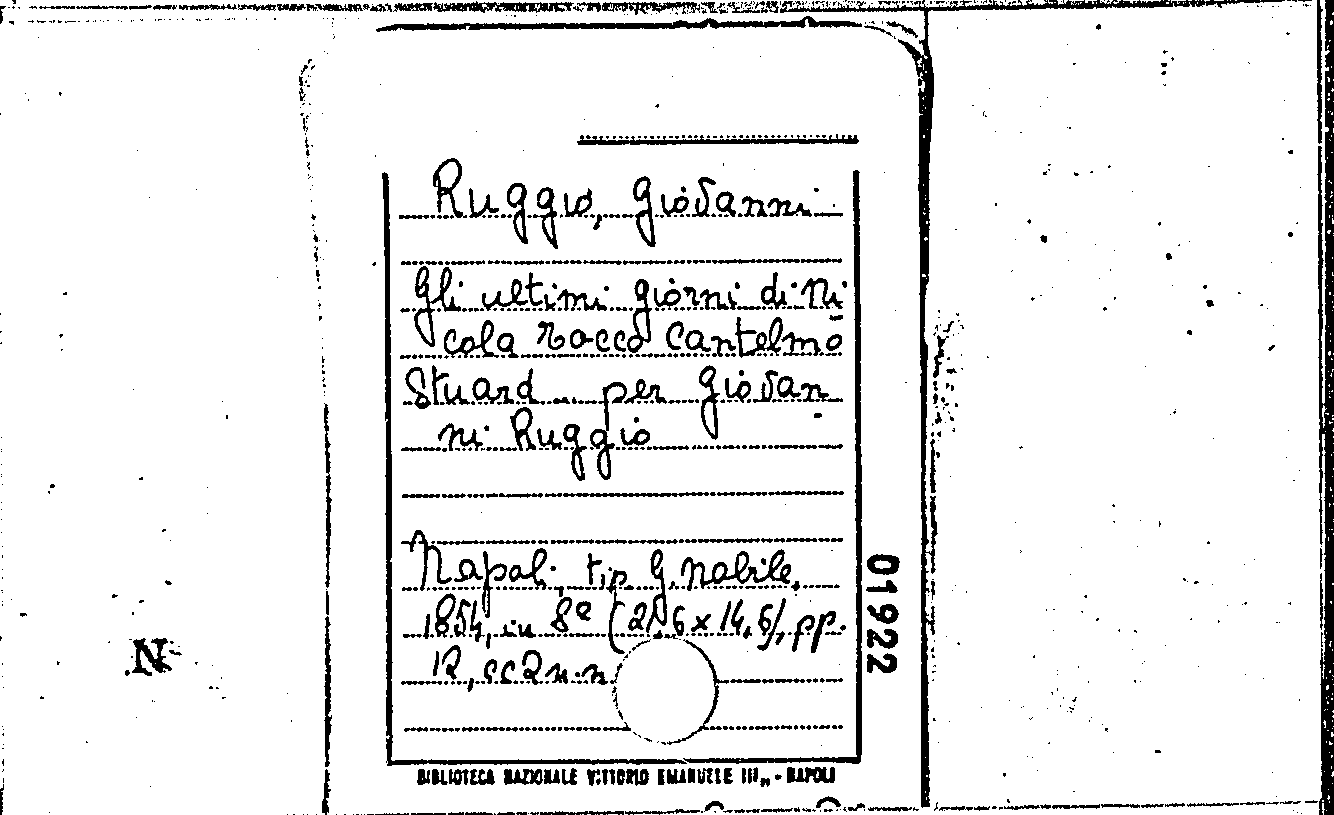 Ruggio, Giovanni
Gli ultimi giorni di Ni
cola Rocco Cantelmo
Stuard... per Giovan
ni Ruggio
Napoli, tip G. Nobile,
1854, in 8º (21,6 x 14,6), pp.
12, cc 2 n.n.
01922
N
BIBLIOTECA NAZIONALE VITTORIO EMANUELE III„ - NAPOLI